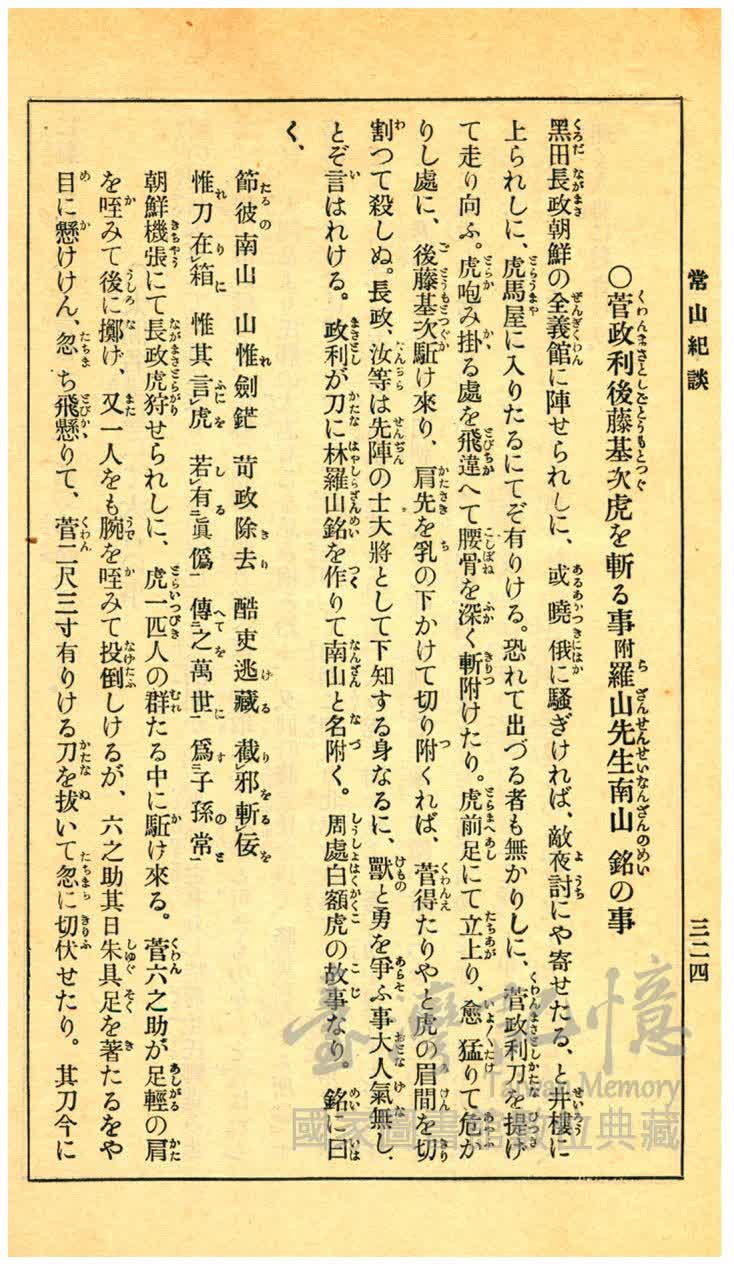 常山紀談
三二四
○菅政利後藤基次虎を斬る事附羅山先生南山銘の事
黑田長政朝鮮の全義館に陣せられしに、或曉俄に騷ぎければ、敵夜討にや寄せたる、と井樓に
上られしに、虎馬屋に入りたるにてぞ有りける。恐れて出づる者も無かりしに、菅政利刀を提げ
て走り向ふ。虎咆み掛る處を飛違へて腰骨を深く斬附けたり。虎前足にて立上り、愈猛りて危か
りし處に、後藤基次駈け來り、肩先を乳の下かけて切り附くれば、菅得たりやと虎の眉間を切
割つて殺しぬ。長政、汝等は先陣の士大將として下知する身なるに、獸と勇を爭ふ事大人氣無し、
とぞ言はれける。政利が刀に林羅山銘を作りて南山と名附く。周處白額虎の故事なり。銘に曰
く、
節彼南山　山惟劍鋩　苛政除去　酷吏逃藏　截レ邪斬レ佞
惟刀在レ箱　惟其言レ虎　若レ有二眞僞一　傳二之萬世一　爲二子孫常一
朝鮮機張にて長政虎狩せられしに、虎一匹人の群たる中に駈け來る。菅六之助が足輕の肩
を咥みて後に擲げ、又一人をも腕を咥みて投倒しけるが、六之助其日朱具足を著たるをや
目に懸けけん、忽ち飛懸りて、菅二尺三寸有りける刀を拔いて忽に切伏せたり。其刀今に
臺灣記憶
Taiwan Memory
國家圖書館數位典藏